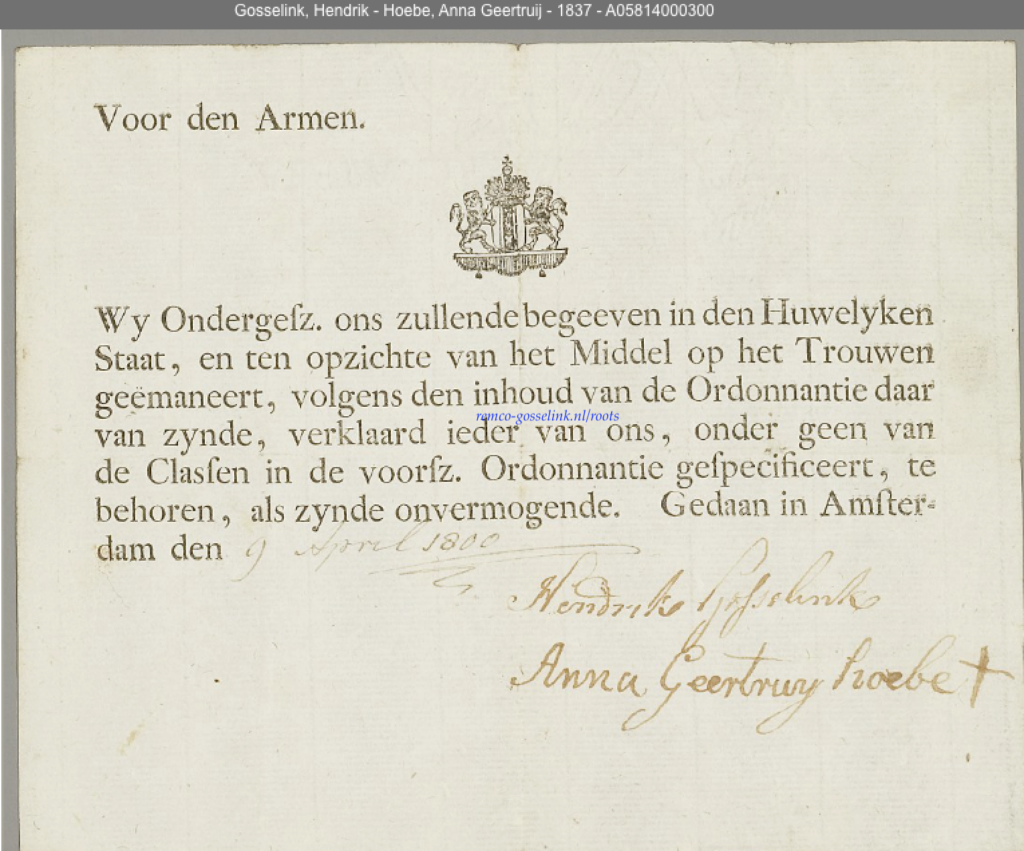 Gosselink, Hendrik - Hoebe, Anna Geertruij - 1837 - A05814000300
Voor den Armen.
Wy Ondergeſz. ons zullende begeeven in den Huwelyken
Staat, en ten opzichte van het Middel op het Trouwen
geëmaneert, volgens den inhoud van de Ordonnantie daar
remco-gosselink.nl/roots
van zynde, verklaard ieder van ons, onder geen van
de Claſſen in de voorſz. Ordonnantie geſpecificeert, te
behoren, als zynde onvermogende. Gedaan in Amſter-
dam den 9 April 1800
Hendrik Gosselink
Anna Geertruy hoebe +